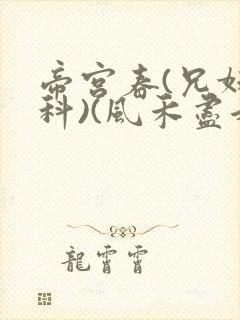 帝宮春(兄妹
科)(風禾盡
龍霄霄